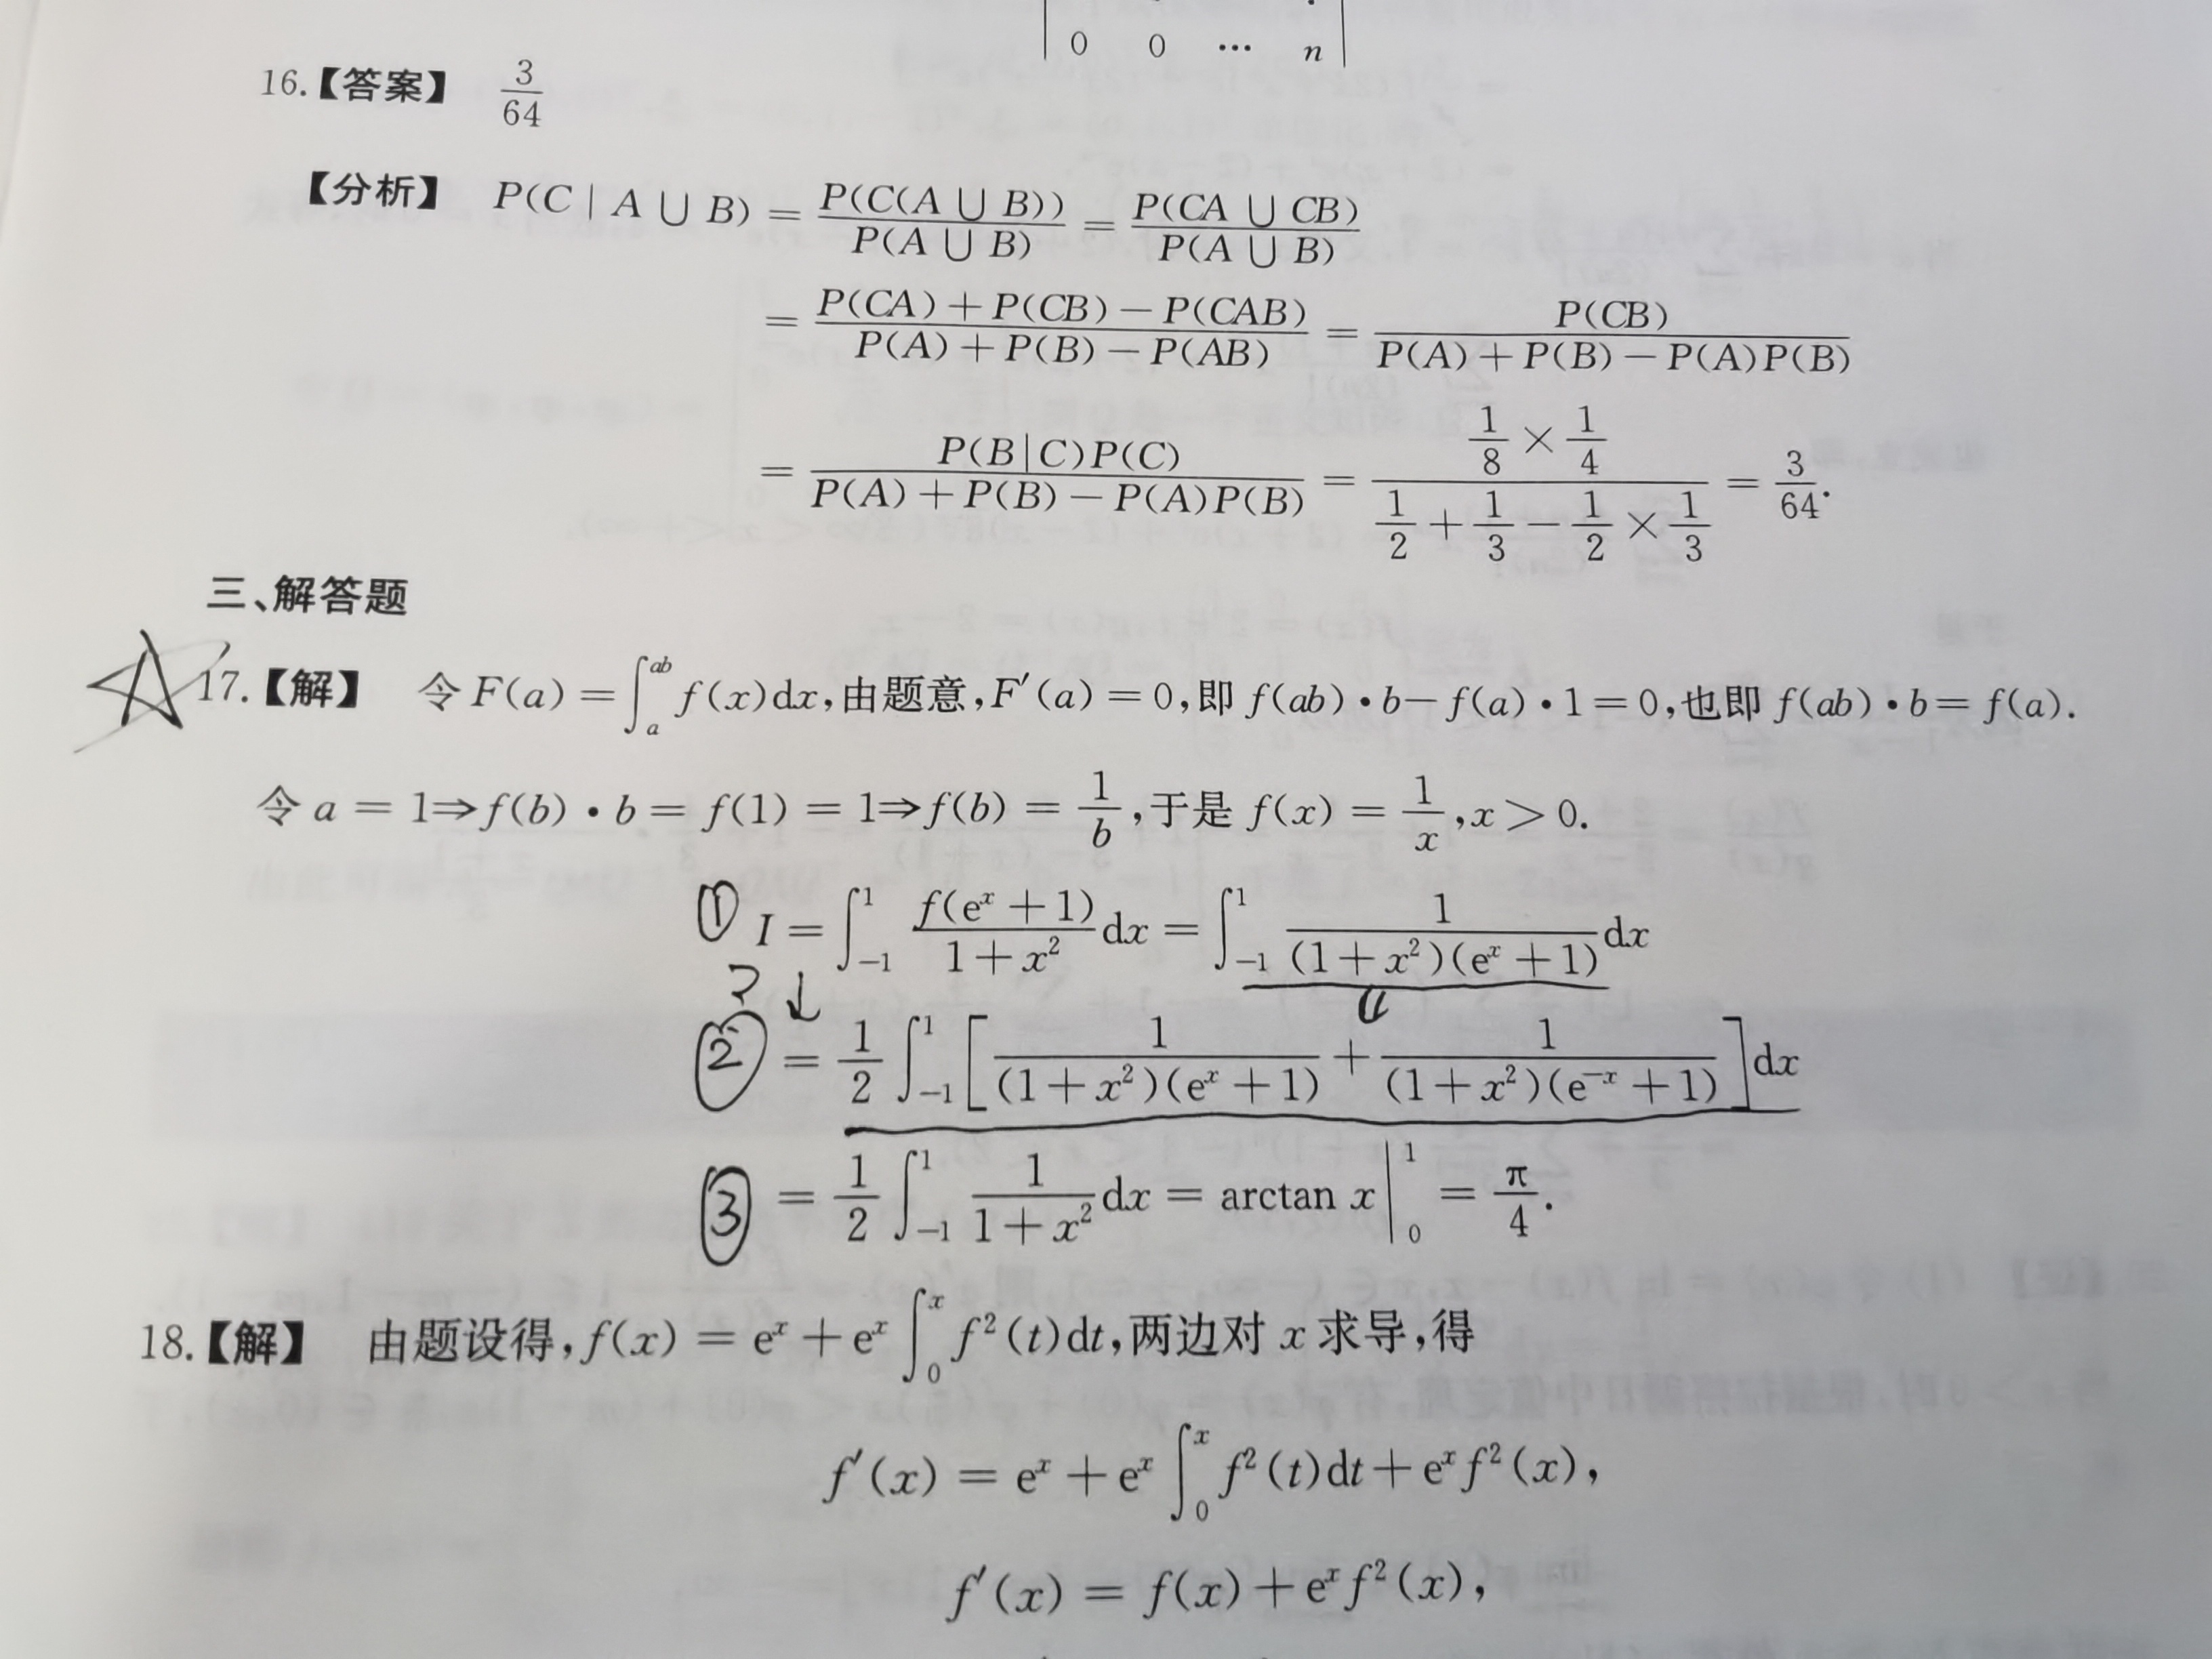 0 0 ⋯ n
16.【答案】 3/64
【分析】 P(C | A ∪ B) = P(C(A ∪ B))/P(A ∪ B) = P(CA ∪ CB)/P(A ∪ B)
= (P(CA) + P(CB) − P(CAB))/(P(A) + P(B) − P(AB)) = P(CB)/(P(A) + P(B) − P(A)P(B))
= P(B|C)P(C)/(P(A) + P(B) − P(A)P(B)) = (1/8 × 1/4)/(1/2 + 1/3 − 1/2 × 1/3) = 3/64.
三、解答题
17.【解】 令 F(a) = ∫_a^{ab} f(x)dx,由题意,F′(a) = 0,即 f(ab)·b − f(a)·1 = 0,也即 f(ab)·b = f(a).
令 a = 1⇒f(b)·b = f(1) = 1⇒f(b) = 1/b,于是 f(x) = 1/x,x > 0.
① I = ∫_{−1}^{1} f(e^x + 1)/(1 + x²) dx = ∫_{−1}^{1} 1/((1 + x²)(e^x + 1)) dx
? ↓
② = 1/2 ∫_{−1}^{1} [1/((1 + x²)(e^x + 1)) + 1/((1 + x²)(e^{−x} + 1))]dx
③ = 1/2 ∫_{−1}^{1} 1/(1 + x²) dx = arctan x |_0^1 = π/4.
18.【解】 由题设得,f(x) = e^x + e^x ∫_0^x f²(t)dt,两边对 x 求导,得
f′(x) = e^x + e^x ∫_0^x f²(t)dt + e^x f²(x),
f′(x) = f(x) + e^x f²(x),